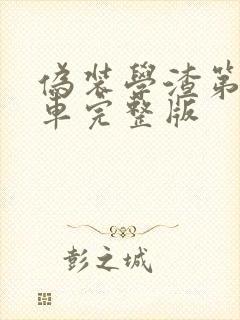 偽裝學渣第
車完整版
彭之城